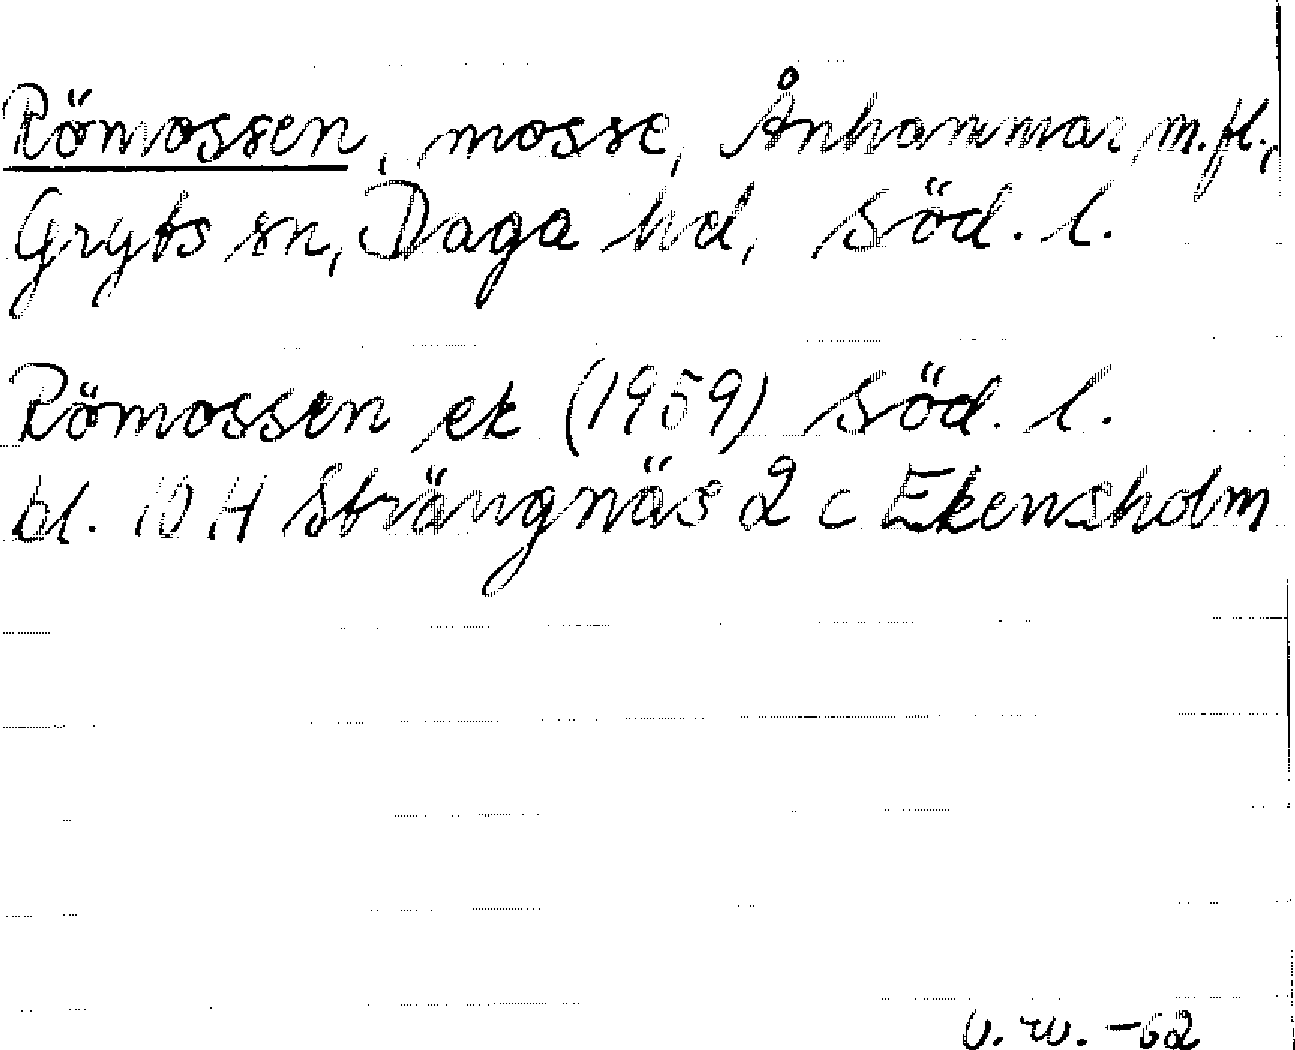 Römossen, mosse, Ånhammar m.fl.,
Gryts sn, Daga hd, Söd. l.
Römossen ek (1959) Söd. l.
bl. 10 H Strängnäs 2 c Ekensholm
U. W. -62